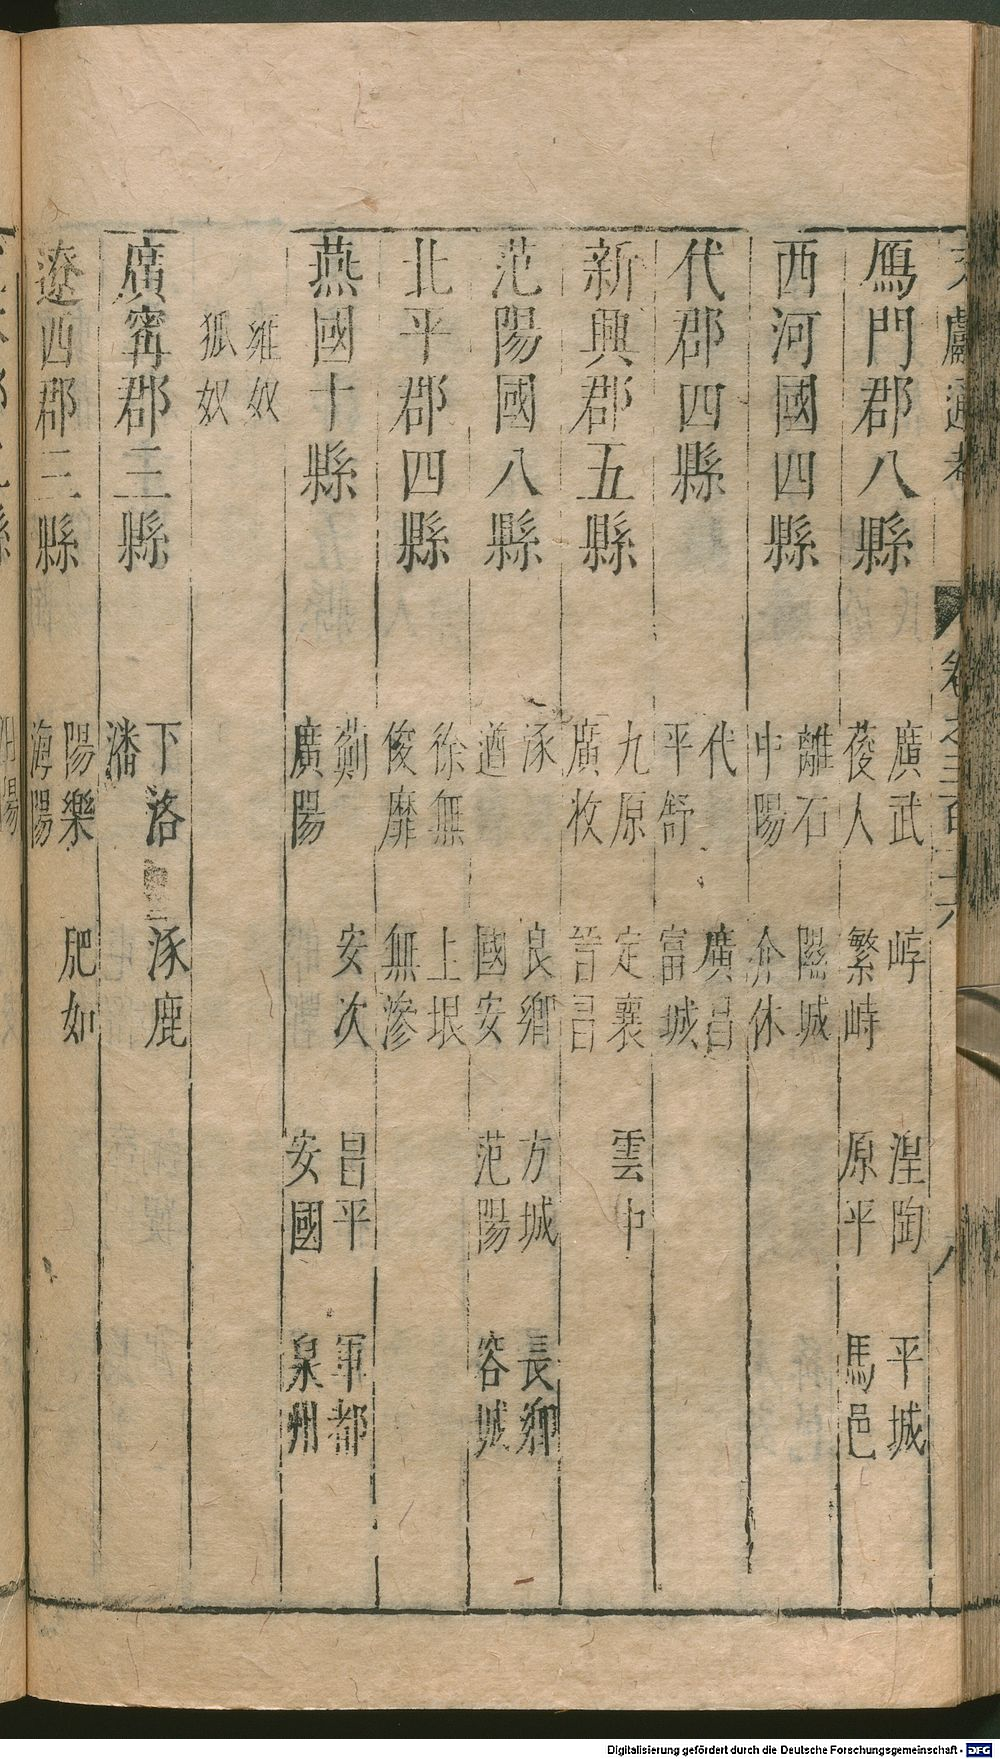 文獻通考 卷之三百十六 八
鴈門郡八縣 廣武 崞 涅陶 平城
葰人 繁峙 原平 馬邑
西河國四縣 離石 隰城
中陽 介休
代郡四縣 代 廣昌
平舒 富城
新興郡五縣 九原 定襄 雲中
廣牧 晉昌
范陽國八縣 涿 良鄉 方城 長鄉
遒 國安 范陽 容城
北平郡四縣 徐無 土垠
俊靡 無滲
燕國十縣 薊 安次 昌平 軍都
廣陽 安國 泉州
雍奴
狐奴
廣甯郡三縣 下洛 涿鹿
潘
遼西郡三縣 陽樂 肥如
海陽
Digitalisierung gefördert durch die Deutsche Forschungsgemeinschaft - DFG